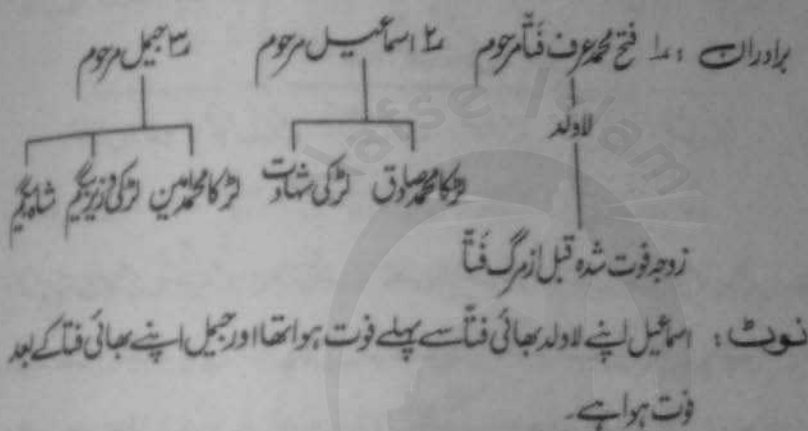 برادران : ۱؎ فتح محمد عرف فتاّ مرحوم ۲؎ اسماعیل مرحوم ۳؎ جیمل مرحوم
لاولد
لڑکا محمد صادق لڑکی شہادت لڑکا محمد امین لڑکی وزیر بیگم شاہ بیگم
زوجہ فوت شدہ قبل از مرگ فتاّ
نوٹ : اسماعیل اپنے لاولد بھائی فتاّ سے پہلے فوت ہوا تھا اور جیمل اپنے بھائی فتا کے بعد
فوت ہوا ہے۔
Nafse Islam